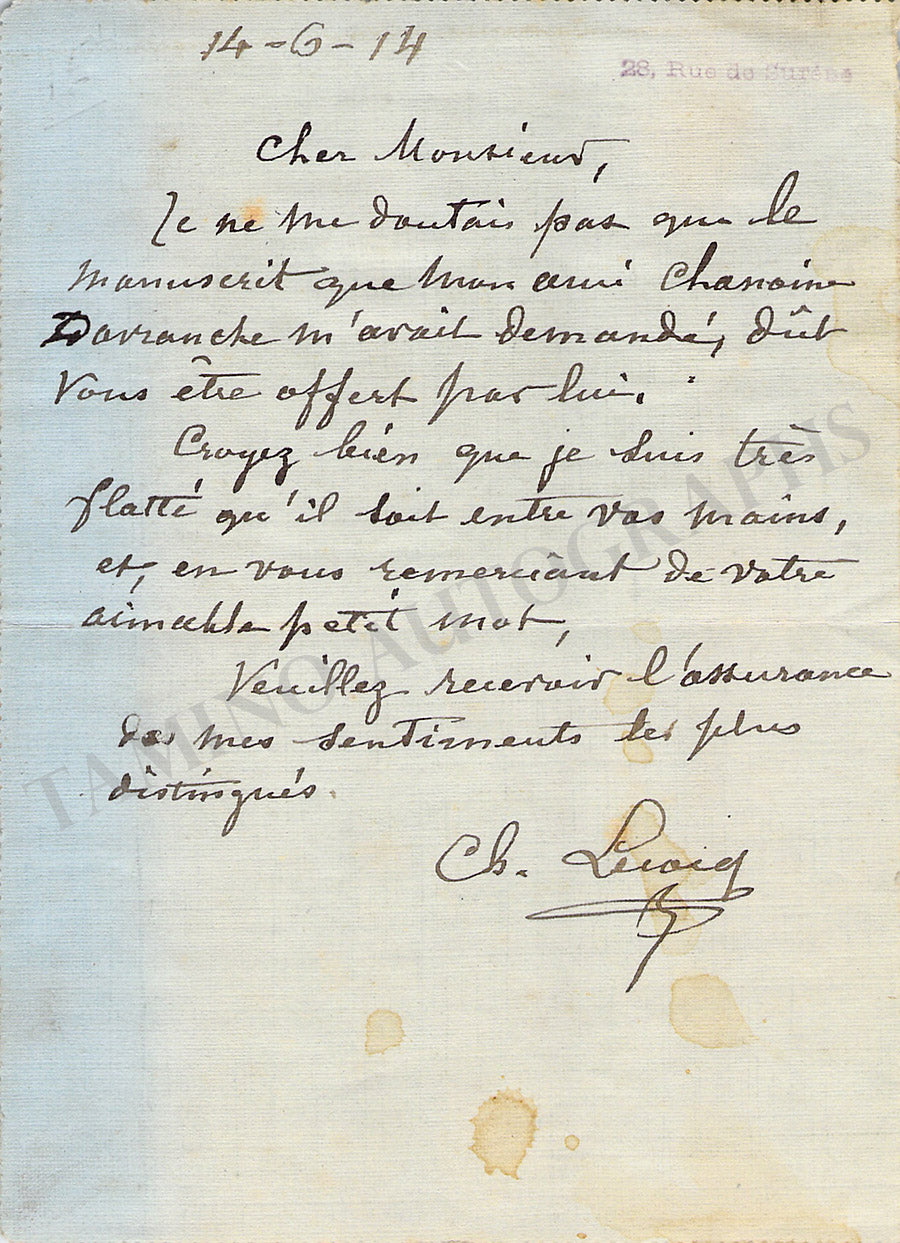 14-6-14
28, Rue de Surène
Cher Monsieur,
Je ne me doutais pas que le
manuscrit que mon ami Chanoine
Davranche m'avait demandé, dût
vous être offert par lui.
Croyez bien que je suis très
flatté qu'il soit entre vos mains,
et, en vous remerciant de votre
aimable petit mot,
Veuillez recevoir l'assurance
de mes sentiments les plus
distingués.
Ch. Lecocq
TAMINO AUTOGRAPHS